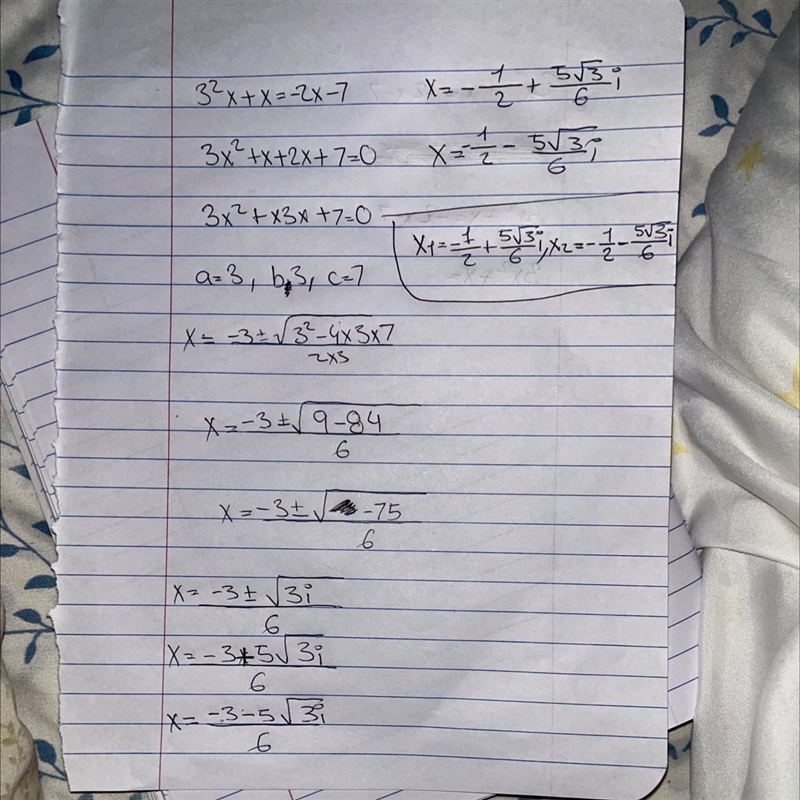 3²x+x=-2x-7
3x²+x+2x+7=0
3x²+x3x+7=0
a=3, b,3, c=7
x= -3±√(3²-4x3x7) / 2x3
x= -3±√(9-84) / 6
x= -3±√(-75) / 6
x= -3±√(3i) / 6
x= -3+5√(3i) / 6
x= -3-5√(3i) / 6
x=-1/2+5√3/6 i
x=-1/2-5√3/6 i
x₁=-1/2+5√3/6 i, x₂=-1/2-5√3/6 i